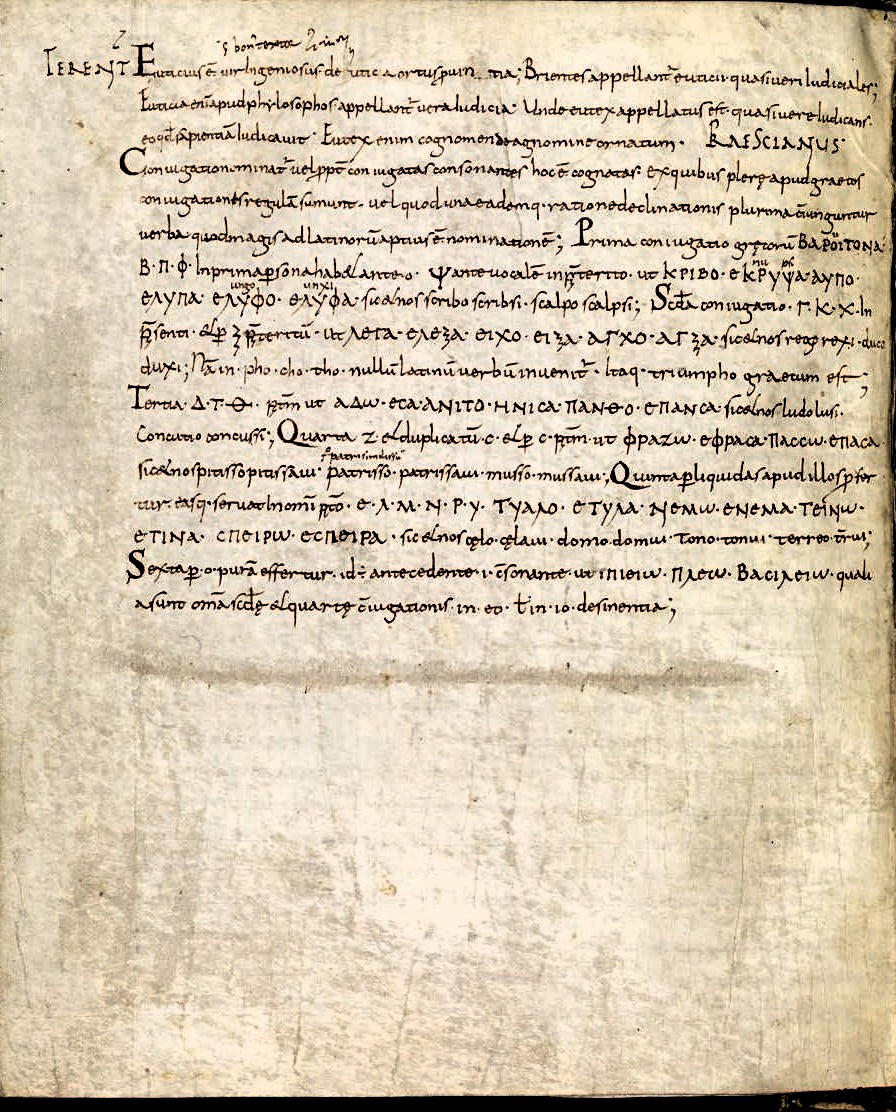 TERENT Euticius ē uir Ingeniosus de utica ortus; Brientes appellant̄ euticii quasi ueri Iudiciales;
Euticia enī apud phylosophos appellant̄ uera Iudicia· Unde eutex appellatus est· quasi uere Iudicans·
eo qđ sapientiā Iudicauit· Eutex enim cognomen de agnomine ornatum· RAESCIANUS·
Coniugatio nominat̄ uel ꝓpt̄ coniugatas consonantes hoc ē cognatas· ex quibus plerę apud graecos
coniugationes regulā sumunt· uel quod una eademq· ratione declinationis plurima c̄iunguntur
uerba quod magis ad latinorū aptius ē nominationē; Prima coniugatio gręcorū ΒΑΡΟΪΤΟΝΑ·
Β·Π·Φ· In prima ꝑsona habeł ante o· Ψ ante uocalē in p̄terito· ut ΚΡΙΒΟ· ЄΚΡΥΨΑ· ΑΥΠΟ·
ЄΛΥΠΑ· ЄΛΥΦΟ· ЄΛΥΦΑ· sic & nos scribo scribsi· scalpo scalpsi; Scđa coniugatio· Γ·Κ·Χ· In
p̄senti· & ꝑ ξ p̄teritū· ut ΛЄΓΑ· ЄΛЄξΑ· ЄΙΧΟ· ЄΙξΑ· ΑΓΧΟ· ΑΓξΑ· sic & nos rego rexi· duco
duxi; Nā in· pho· cho· tho· nullū latinū uerbū inuenit̄· Itaq· triumpho graecum est;
Tertia· Δ·Τ·Θ· p̄tm ut ΑΔω· ЄCΑ· ΑΝΙΤΟ· ΗΝΙCΑ· ΠΑΝΘΟ· ЄΠΑΝCΑ· sic & nos ludo lusi·
Concutio concussi; Quarta Ζ· & duplicatū· C· & ꝑ C· p̄tm· ut ΦΡΑΖω· ЄΦΡΑCΑ· ΠΑCCω· ЄΠΑCΑ·
sic & nos pitisso pitissaui· patrisso· patrissaui· musso· mussaui; Quinta ꝑ liquidas apud illos ꝓfer
tur· easq· seruat In omī p̄to· Є·Λ·Μ·Ν·Ρ·Υ· ΤΥΛΛΟ· ЄΤΥΛΑ· ΝЄΜω· ЄΝЄΜΑ· ΤЄΙΝω·
ЄΤΙΝΑ· CΠЄΙΡω· ЄCΠЄΙΡΑ· sic & nos cęlo· cęlaui· domo· domui· tono· tonui· terreo· t̄rui;
Sexta ꝑ· o· purā effertur· id ÷ antecedente· i· c̄sonante· ut ΙΠΙЄΙω· ΠΛЄω· ΒΑCΙΛЄΙω· quali
a sunt om̄a scđę & quartę c̄iugationis· in· eo· t̄ in· io· desinentia;